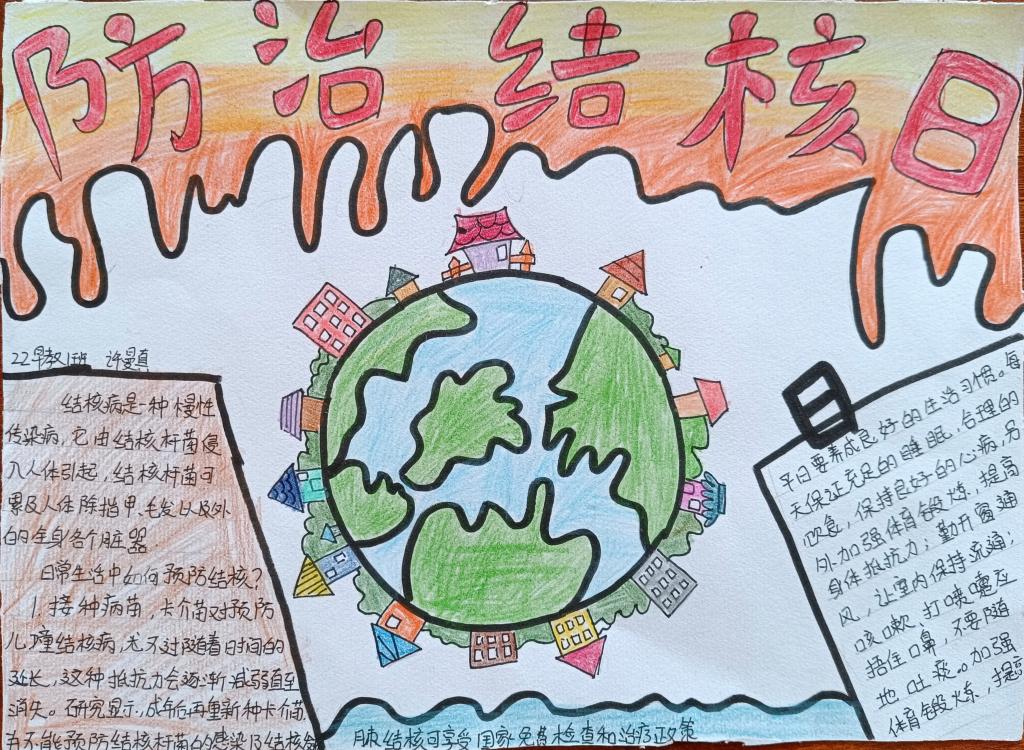 防治结核日
22早教1班 许曼真
结核病是一种慢性
传染病,它由结核杆菌侵
入人体引起,结核杆菌可
累及人体除指甲、毛发以及外
的全身各个脏器.
日常生活中如何预防结核?
1.接种病苗,卡介苗对预防
儿童结核病,尤不过随着日时间的
延长,这种抵抗力会逐渐减弱直至
消失。研究显示,成年后再重新种卡介苗
并不能预防结核杆菌的感染及结核
平日要养成良好的生活习惯。每
天保证充足的睡眠,合理的
饮食,保持良好的心病,另
外加强体育锻炼,提高
身体抵抗力;勤开窗通
风,让室内保持流通;
咳嗽、打喷嚏应
捂住口鼻,不要随
地吐痰。加强
体育锻炼,提高
肺结核可享受国家免费检查和治疗政策